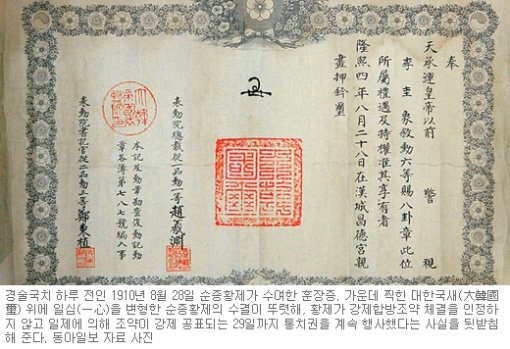 奉
天承運皇帝以前 警視
李圭象敘勳六等賜八卦章此位
所屬禮遇及特權准其享有者
隆熙四年八月二十八日在漢城昌德宮親
畫押鈐璽
表勳院總裁從一品勳一等趙羲淵
本記及勳章勘查後勳記勳
章名簿第七八七號編入事
表勳院書記官從二品勳三等鄭東植
경술국치 하루 전인 1910년 8월 28일 순종황제가 수여한 훈장증. 가운데 찍힌 대한국새(大韓國
璽) 위에 일심(一心)을 변형한 순종황제의 수결이 뚜렷해, 황제가 강제합방조약 체결을 인정하
지 않고 일제에 의해 조약이 강제 공표되는 29일까지 통치권을 계속 행사했다는 사실을 뒷받침
해 준다. 동아일보 자료 사진